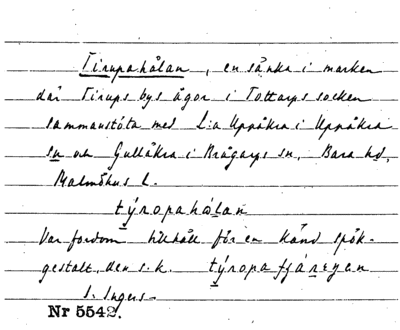 Tirupahålan, en sänka i marken
där Tirups bys ägor i Tottarps socken
sammanstöta med L:a Uppåkra i Uppåkra
sn och Gullåkra i Brågarps sn, Bara hd,
Malmöhus l.
týropahålan
Var fordom tillhåll för en känd spök-
gestalt, den s.k. týropa fjäręyan
S. Ingers
Nr 5542.